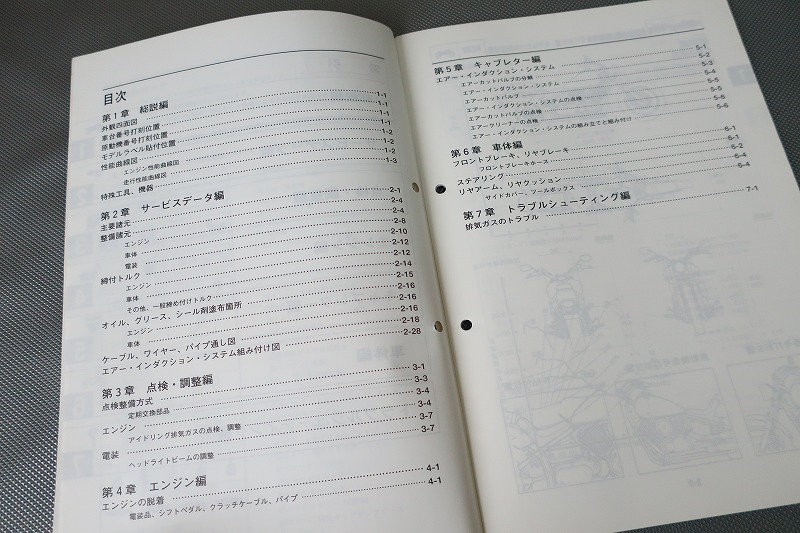 目次
第1章 総説編
外観四面図 1-1
車台番号打刻位置 1-1
原動機番号打刻位置 1-1
モデルラベル貼付位置 1-2
性能曲線図 1-2
エンジン性能曲線図 1-2
走行性能曲線図 1-3
特殊工具、機器
第2章 サービスデータ編
主要諸元 2-1
整備諸元 2-4
エンジン 2-4
車体 2-8
電装 2-10
締付トルク 2-12
エンジン 2-12
車体 2-14
その他、一般締め付けトルク 2-15
オイル、グリース、シール剤塗布箇所 2-16
エンジン 2-16
車体 2-16
ケーブル、ワイヤー、パイプ通し図 2-18
エアー・インダクション・システム組み付け図 2-28
第3章 点検・調整編
点検整備方式 3-1
定期交換部品 3-3
エンジン 3-4
アイドリング排気ガスの点検、調整 3-4
電装 3-7
ヘッドライトビームの調整 3-7
第4章 エンジン編
エンジンの脱着 4-1
電装品、シフトペダル、クラッチケーブル、パイプ 4-1
第5章 キャブレター編
エアー・インダクション・システム 5-1
エアーカットバルブの分解 5-2
エアー・インダクション・システム 5-3
エアーカットバルブ 5-4
エアー・インダクション・システムの点検 5-5
エアーカットバルブの点検 5-5
エアークリーナーの点検 5-6
エアー・インダクション・システムの組み立てと組み付け 5-6
第6章 車体編
フロントブレーキ、リヤブレーキ 6-1
フロントブレーキホース 6-1
ステアリング 6-2
リヤアーム、リヤクッション 6-4
サイドカバー、ツールボックス 6-4
第7章 トラブルシューティング編
排気ガスのトラブル 7-1